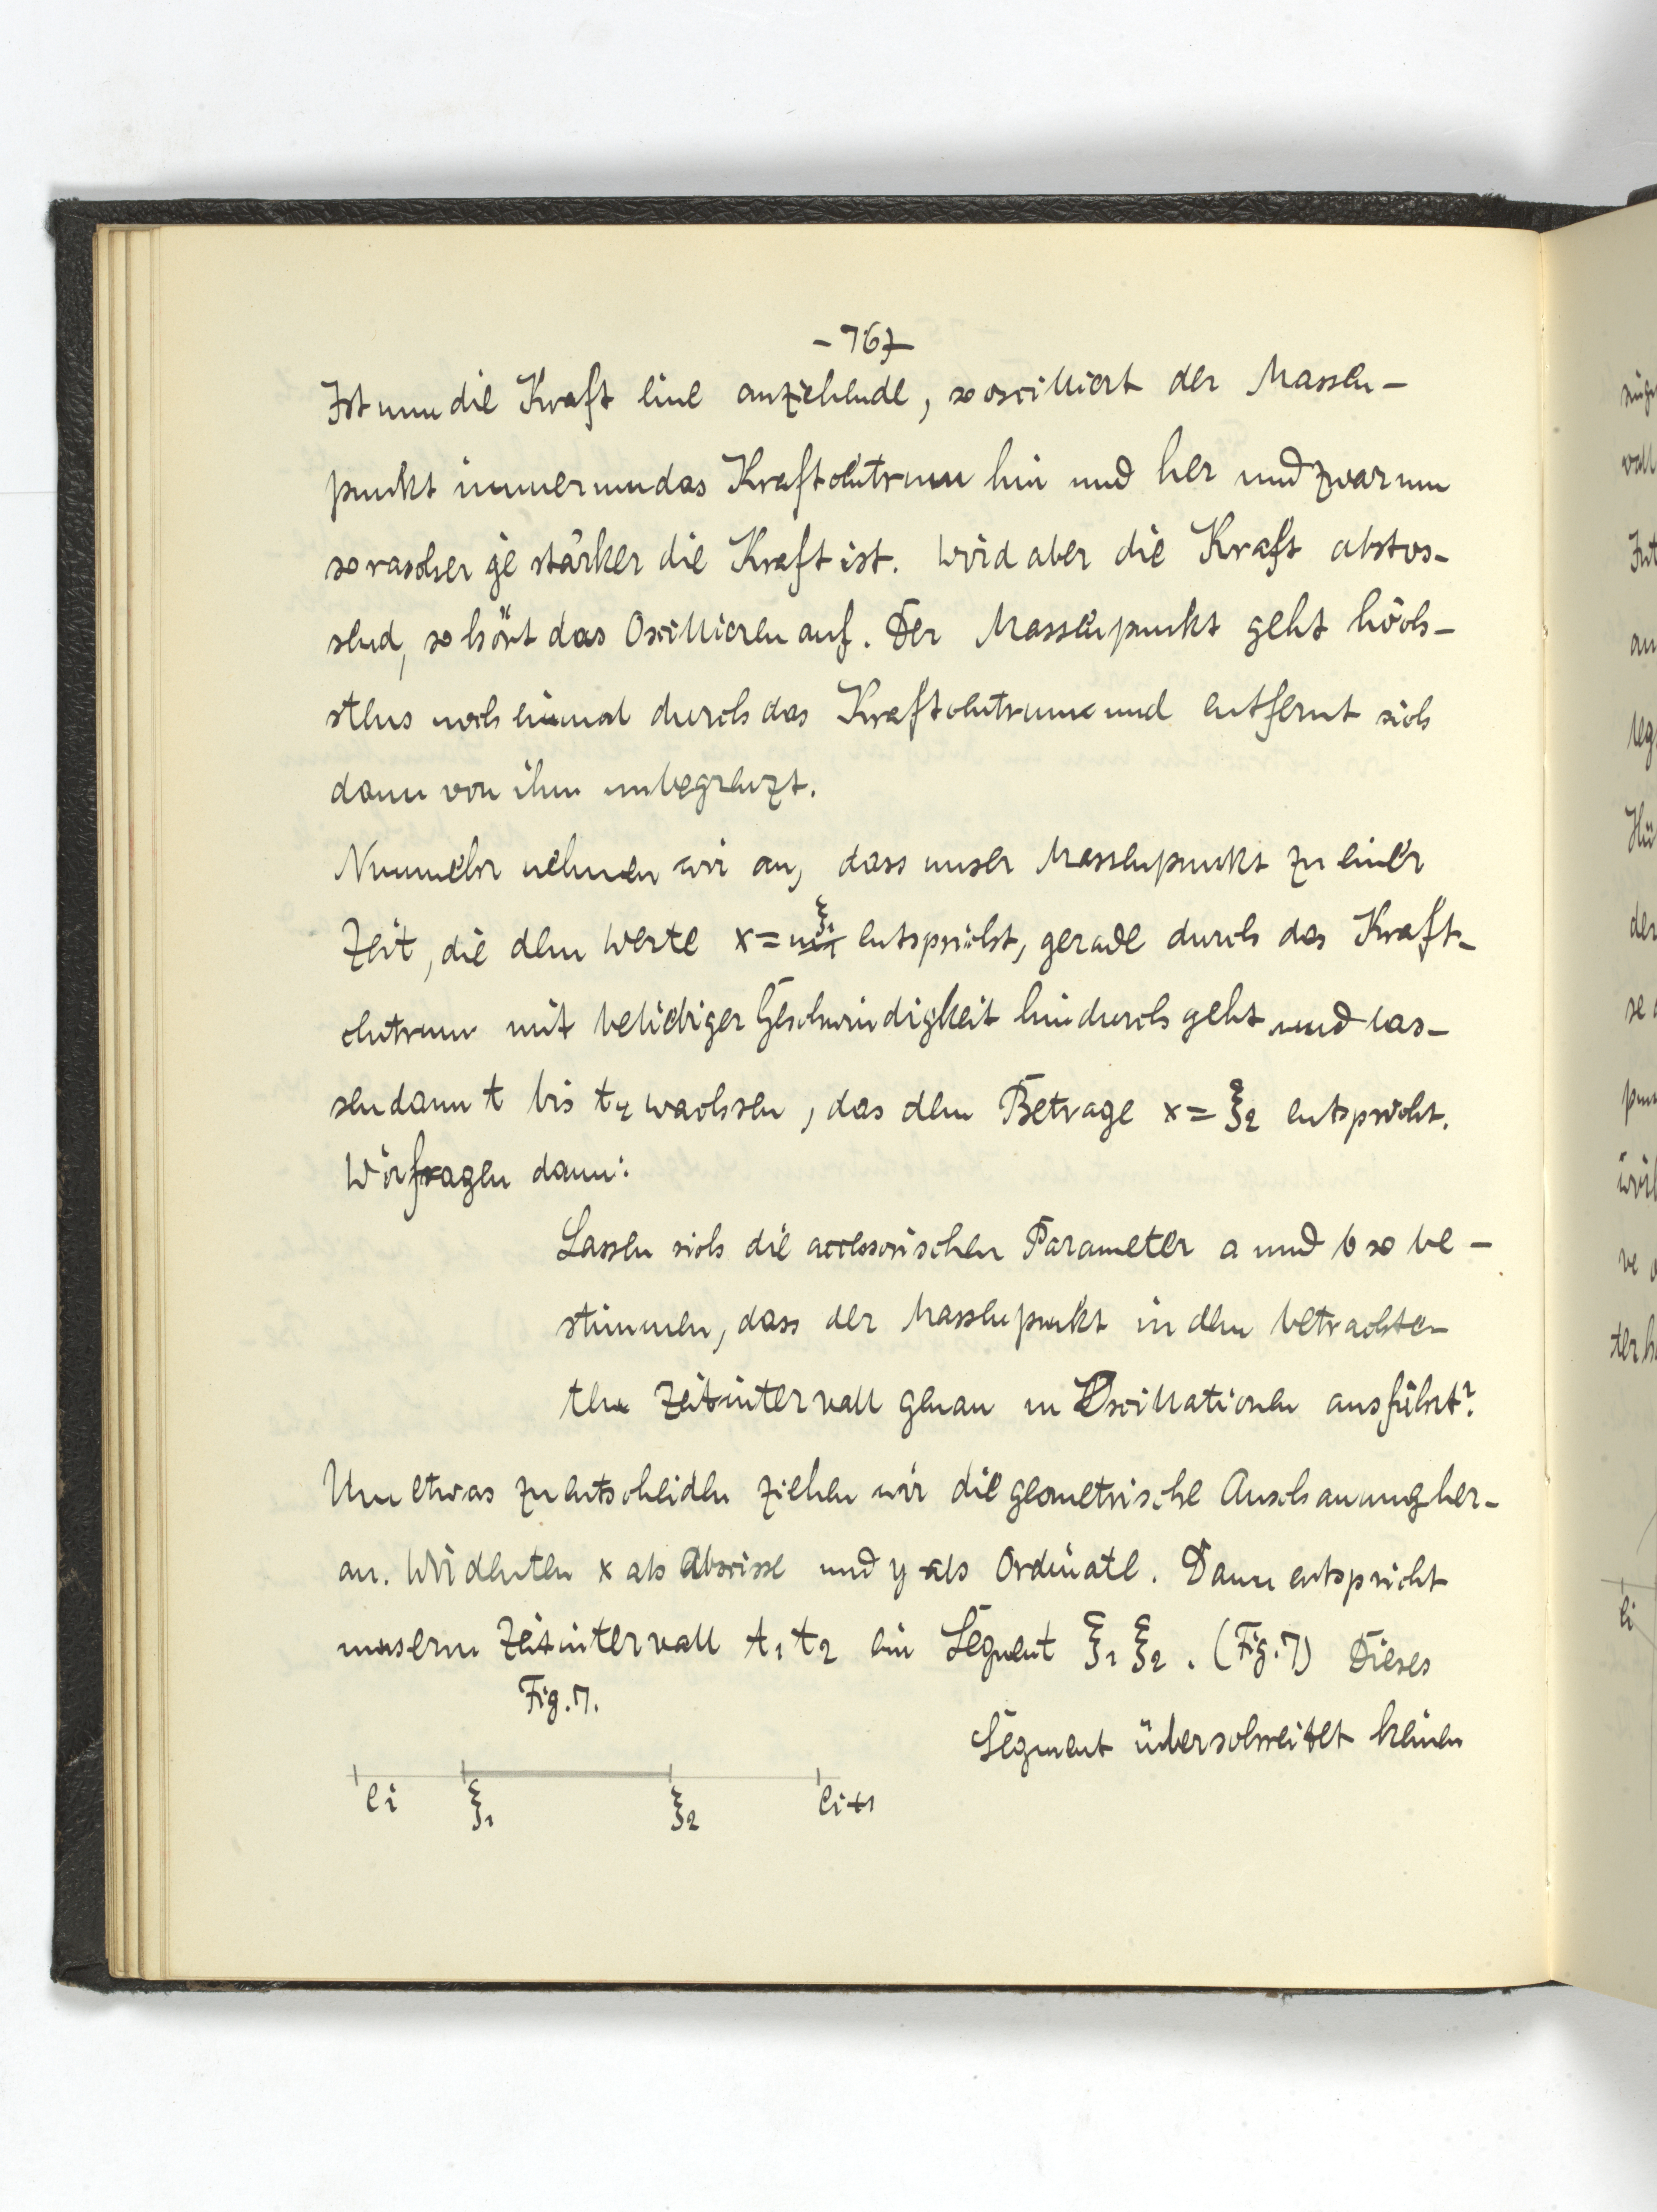 - 767
Ist nun die Kraft eine anziehende, so oscilliert der Massen-
punkt immer um das Kraftcentrum hin und her und zwar um
so rascher je stärker die Kraft ist. Wird aber die Kraft abstos-
send, so hört das Oscillieren auf. Der Massenpunkt geht höch-
stens noch einmal durch das Kraftcentrum und entfernt sich
dann von ihm unbegrenzt.
Nunmehr nehmen wir an, dass unser Massenpunkt zu einer
Zeit, die dem Werte x = ξ1 entspricht, gerade durch das Kraft-
centrum mit beliebiger Geschwindigkeit hindurch geht und las-
sen dann t bis t2 wachsen, das dem Betrage x = ξ2 entspricht.
Wir fragen dann:
Lassen sich die accessorischen Parameter a und b so be-
stimmen, dass der Massenpunkt in dem betrachte-
ten Zeitintervall genau m Oscillationen ausführt?
Um etwas zu entscheiden ziehen wir die geometrische Anschauung her-
an. Wir deuten x als Abscisse und y als Ordinate. Dann entspricht
unserm Zeitintervall t1 t2 ein Segment ξ1 ξ2. (Fig. 7) Dieses
Fig. 7.
Segment überschreitet keinen
ei ξ1 ξ2 ei+1